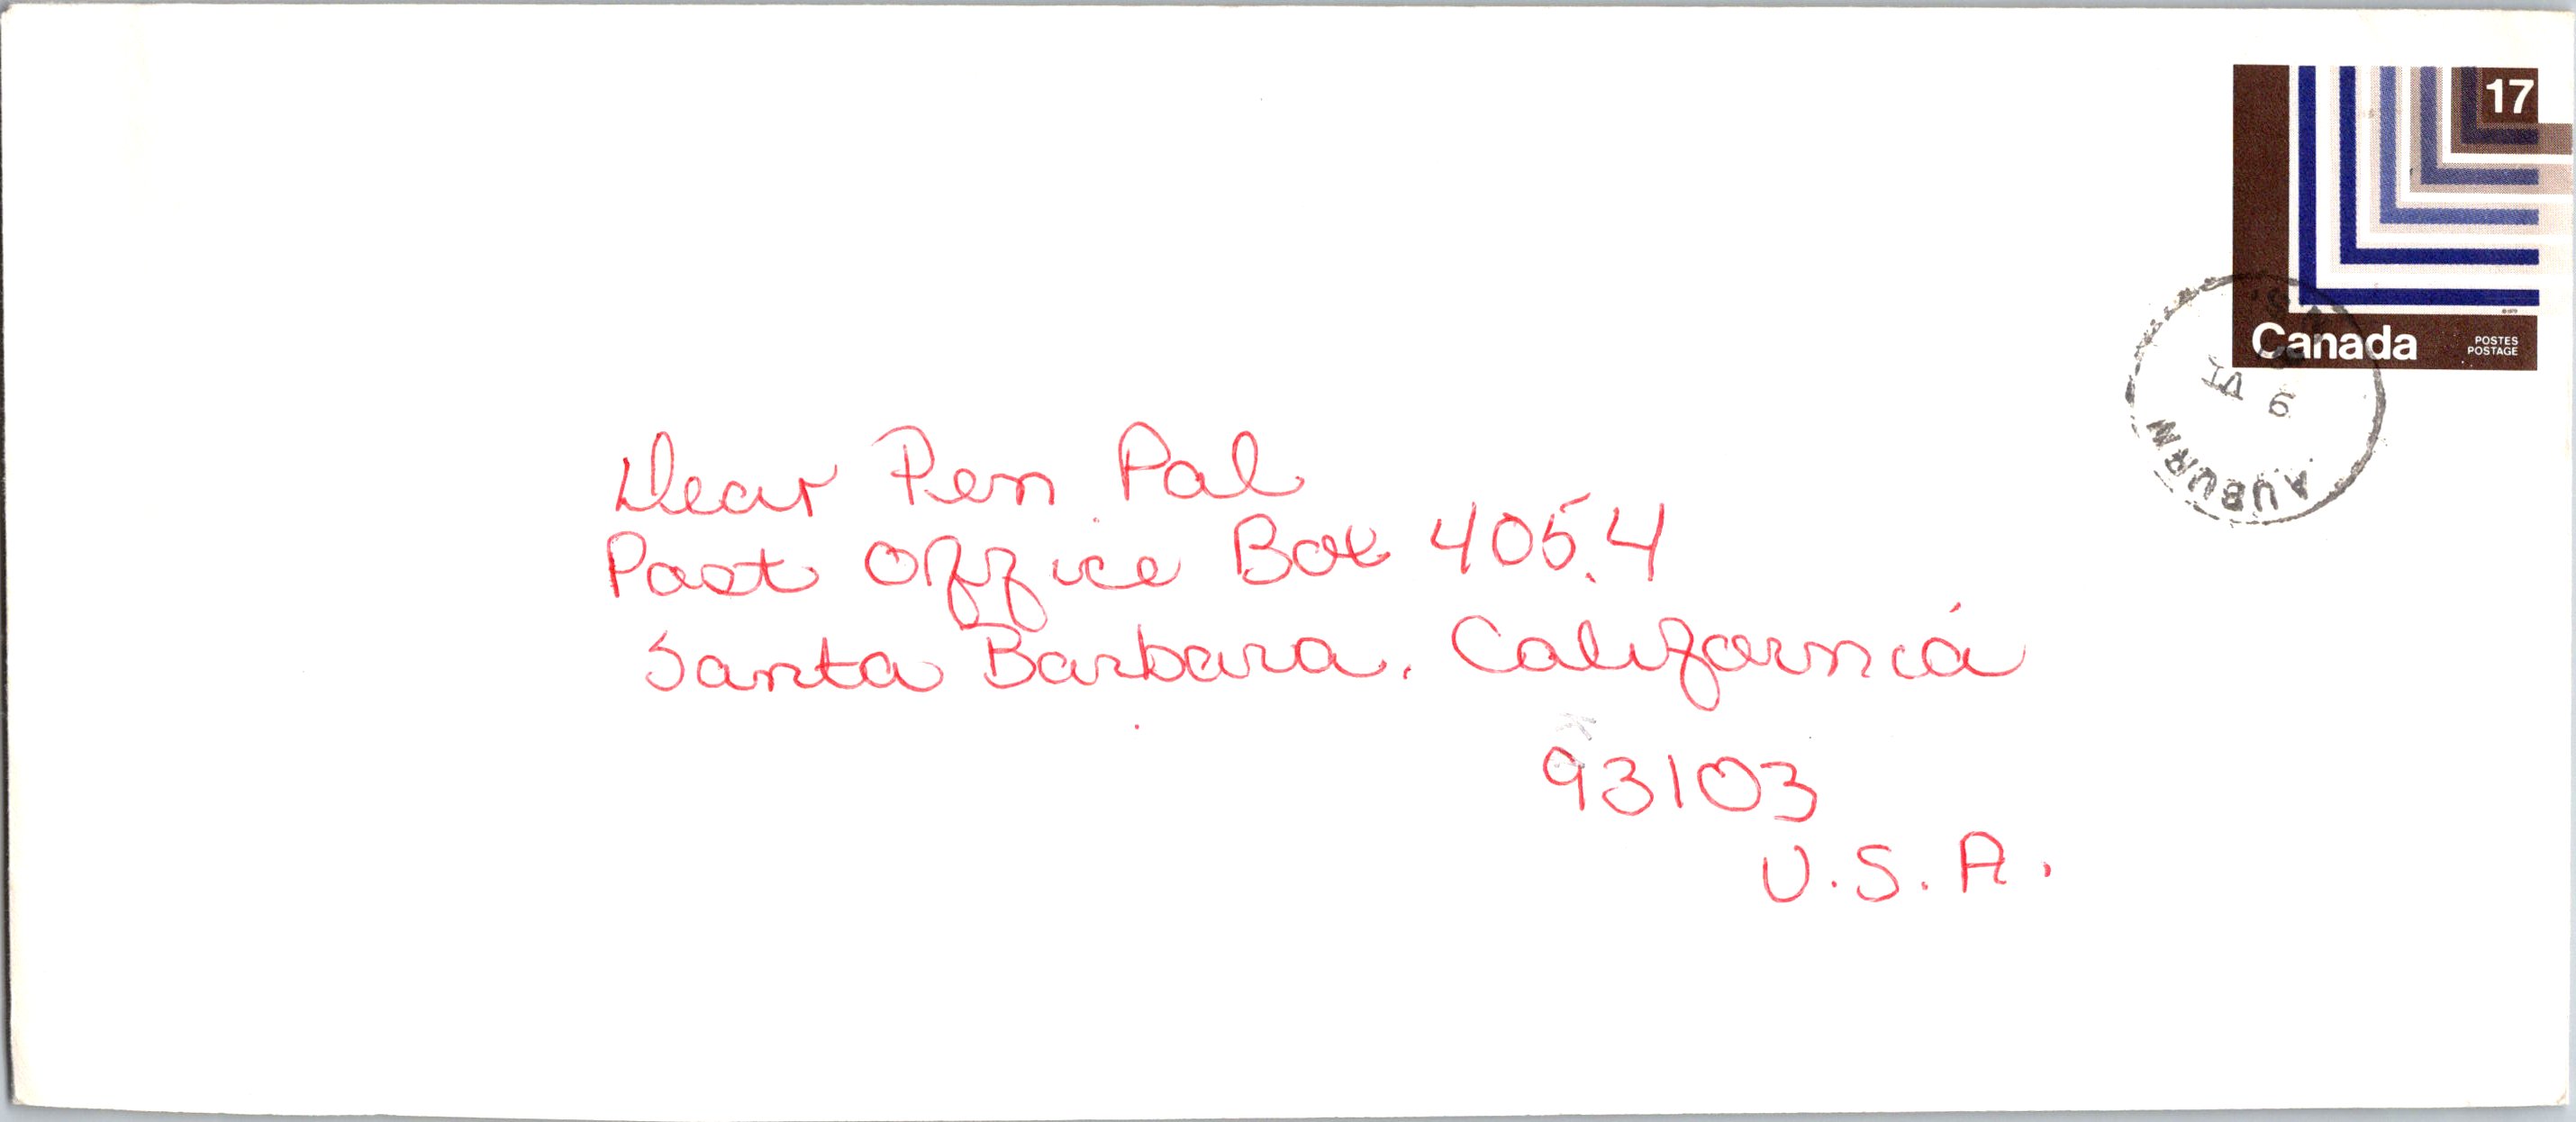 17
Canada
POSTES
POSTAGE
AUBURN
9
VI
Dear Pen Pal
Post Office Box 4054
Santa Barbara, California
93103
U.S.A.